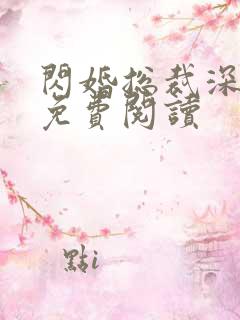 閃婚總裁深
免費閱讀
點i